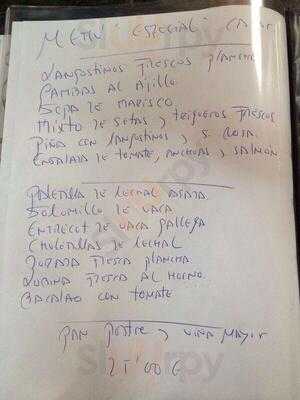 MENU ESPECIAL
LANGOSTINOS FRESCOS PLANCHA
GAMBAS AL AJILLO
SOPA DE MARISCO
MIXTO DE SETAS Y TRIGUEROS FRESCOS
PIÑA CON LANGOSTINOS Y S. ROSA
ENSALADA DE TOMATE, ANCHOAS Y SALMÓN
PALETILLA DE LECHAL ASADA
SOLOMILLO DE VACA
ENTRECOT DE VACA GALLEGA
CHULETILLAS DE LECHAL
DORADA FRESCA PLANCHA
LUBINA FRESCA AL HORNO
BACALAO CON TOMATE
PAN POSTRE Y VIÑA MAYOR
25'00 €
Sluurpy